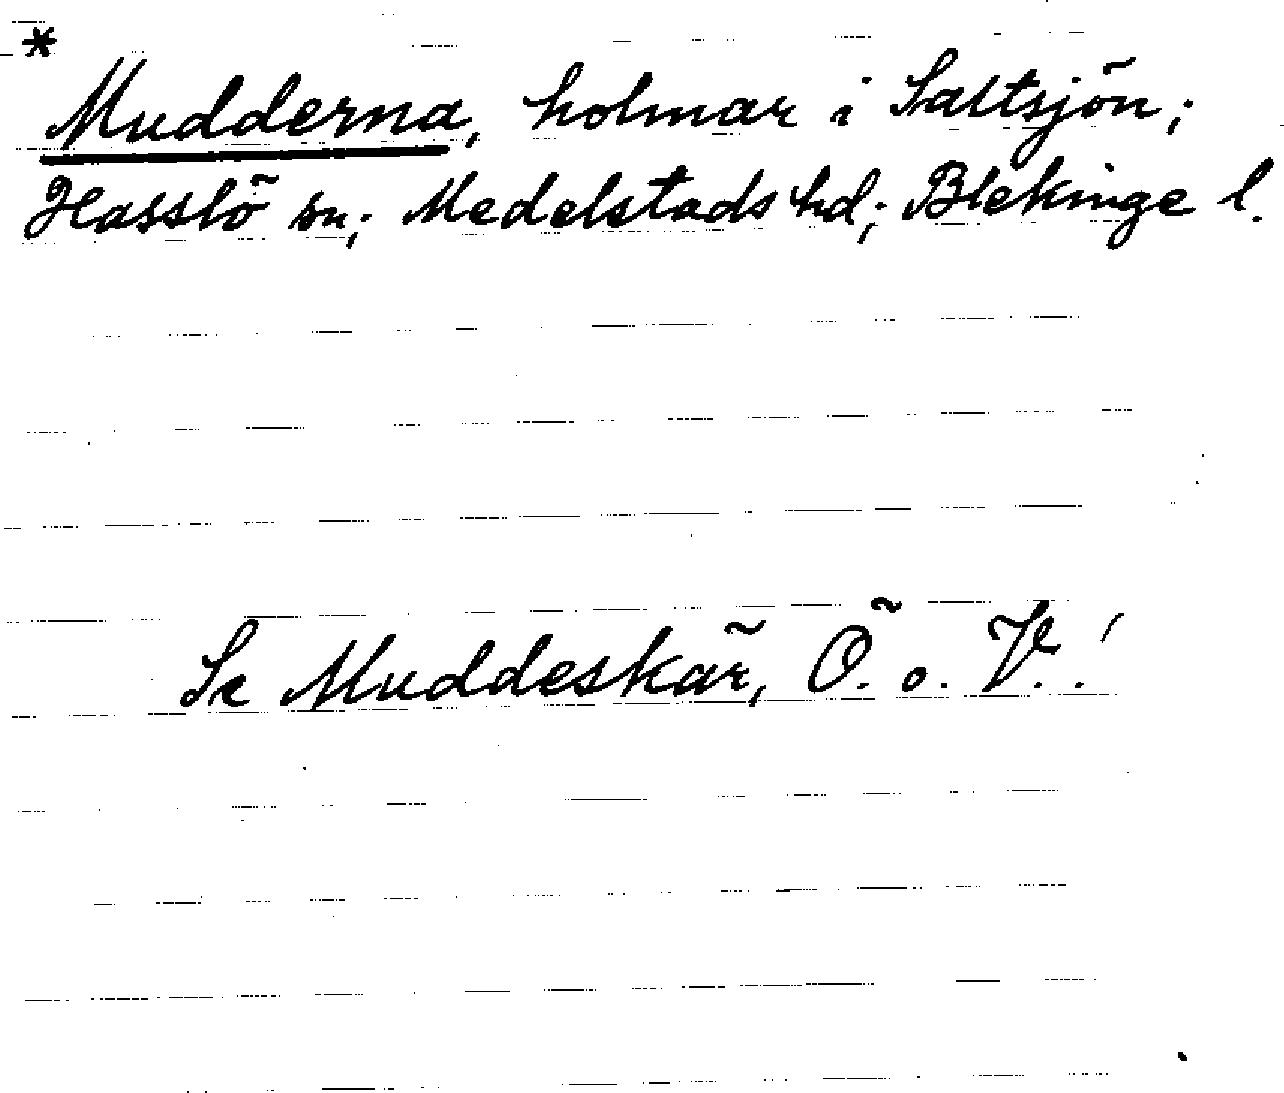 *
Mudderna, holmar i Saltsjön;
Hasslö sn; Medelstads hd; Blekinge l.
Se Muddeskär, Ö. o. V.!